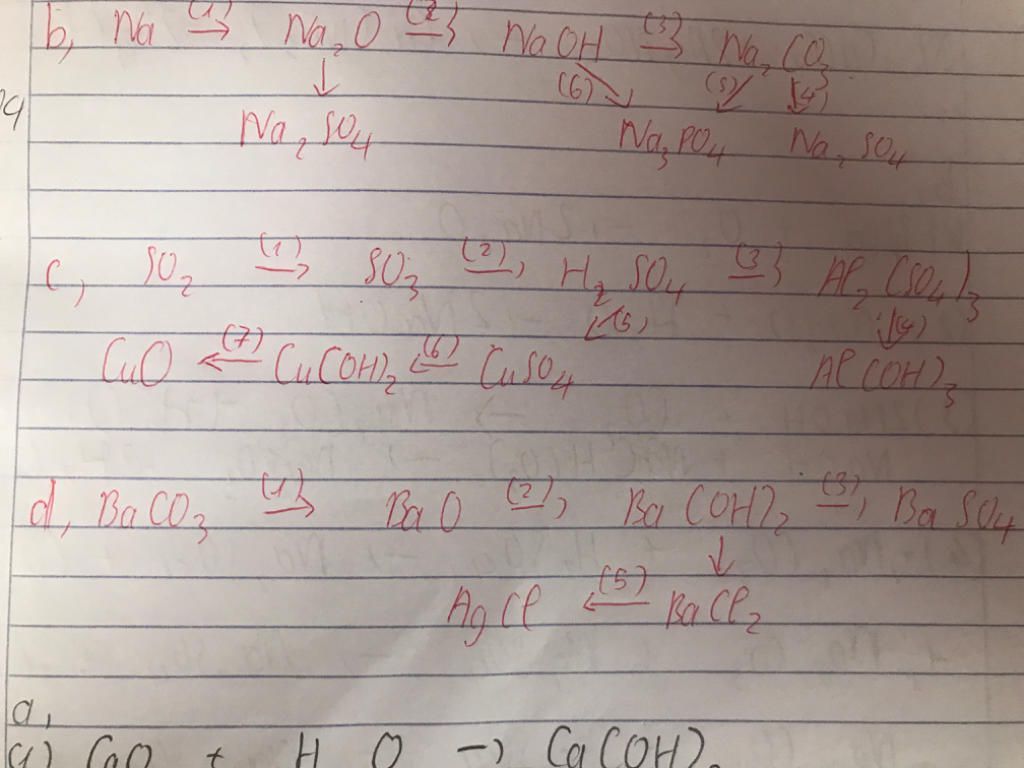 b, Na (1)→ Na₂O (2)→ NaOH (3)→ Na₂CO₃
↓ (6)↘ (5)↙ (4)↓
Na₂SO₄ Na₃PO₄ Na₂SO₄
c, SO₂ (1)→ SO₃ (2)→ H₂SO₄ (3)→ Al₂(SO₄)₃
↙(5) ↓(4)
CuO ←(7) Cu(OH)₂ ←(6) CuSO₄ Al(OH)₃
d, BaCO₃ (1)→ BaO (2)→ Ba(OH)₂ (3)→ BaSO₄
↓
AgCl ←(5) BaCl₂
a,
(1) CaO + H O → Ca(OH)